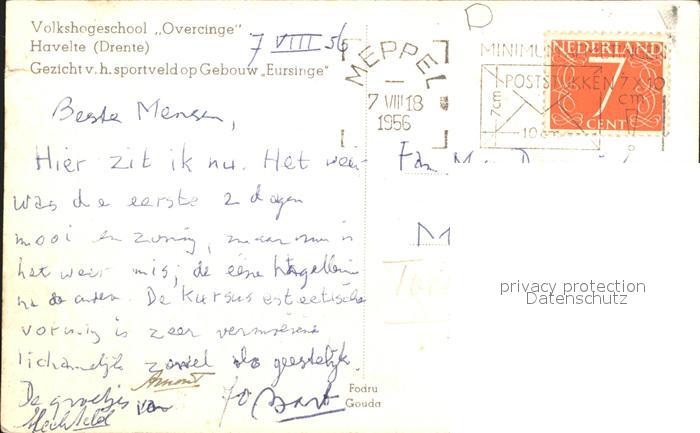 Volkshogeschool „Overcinge"
Havelte (Drente)
Gezicht v. h. sportveld op Gebouw „Eursinge"
7 VIII 56
MEPPEL
7 VIII 18
1956
MINIMUM
POSTSTUKKEN 7 x 10
cm
10 cm
NEDERLAND
7
CENT
D
Beste Mensen,
Hier zit ik nu. Het weer
was de eerste 2 dagen
mooi en zonnig, maar nu is
het weer mis; de ene hagelbui
na de andere. De kursus estetische
vorming is zeer vermoeiend
lichamelijk zowel als geestelijk.
De groetjes van Jo Bart
Mechteld
Fam.
M
Fodru
Gouda
privacy protection
Datenschutz